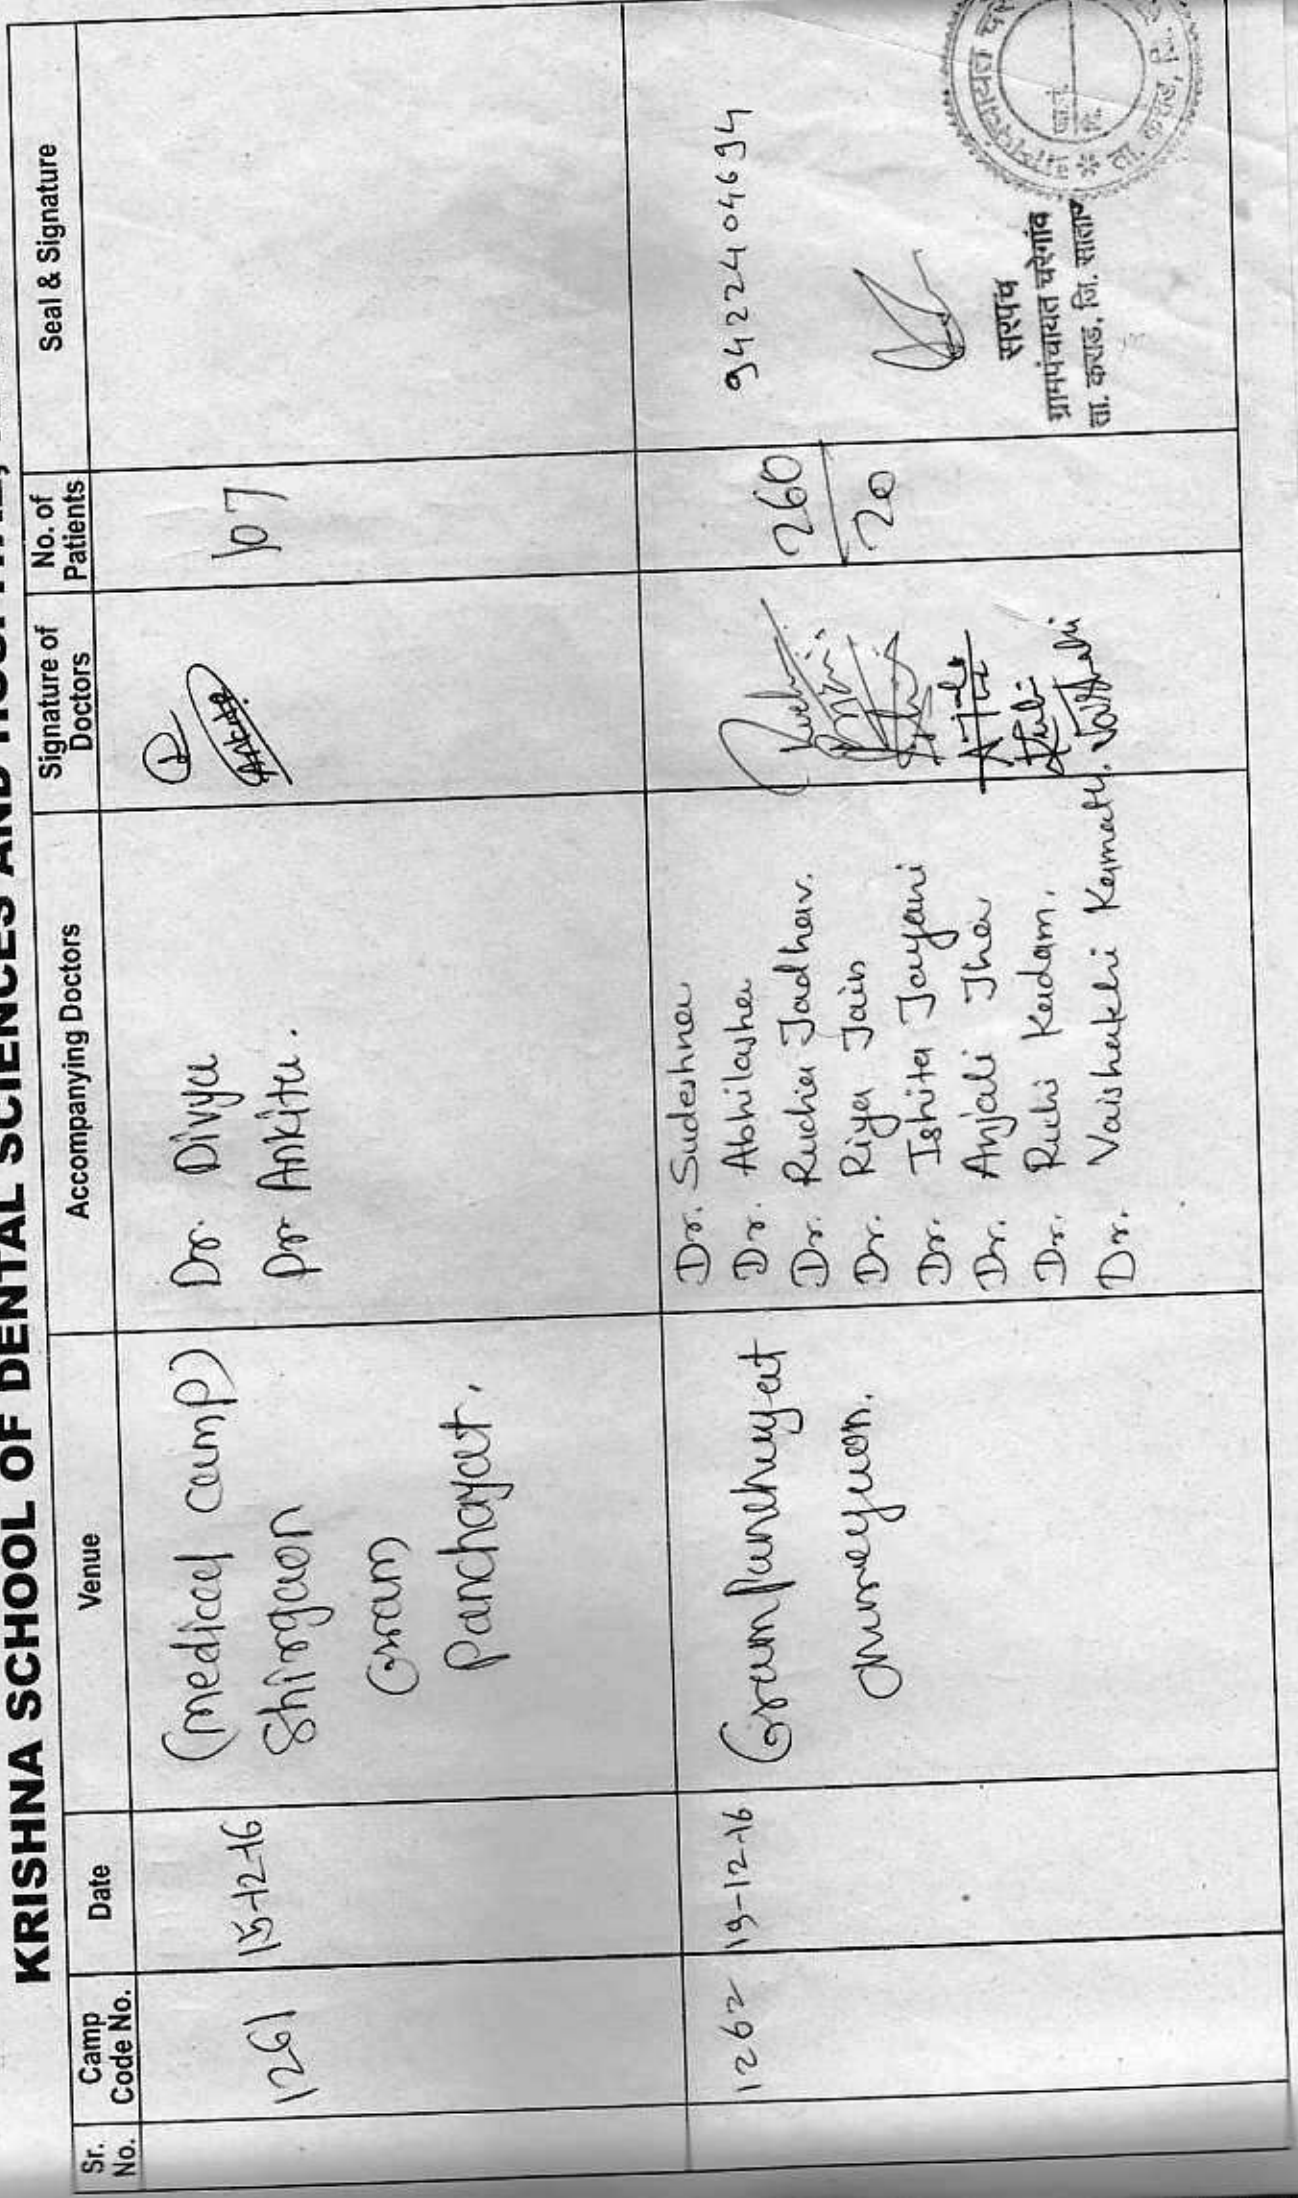 KRISHNA SCHOOL OF DENTAL SCIENCES AND
Sr. No.
Camp Code No.
Date
Venue
Accompanying Doctors
Signature of Doctors
No. of Patients
Seal & Signature
1261
15-12-16
(medical camp)
Shirgaon
Gram
Panchayat.
Dr. Divya
Dr Ankita.
107
1262
19-12-16
GramPanchayat
Dr. Sudeshna
Dr. Abhilasha
Dr. Rucha Jadhav.
Dr. Riya Jain
Dr. Ishita Jayani
Dr. Anjali Jha
Dr. Ruhi Kadam.
Dr. Vaishakhi Kamath.
Vaishakhi
260
20
9422404694
सरपंच
ग्रामपंचायत चरेगांव
ता. कराड, जि. सातारा